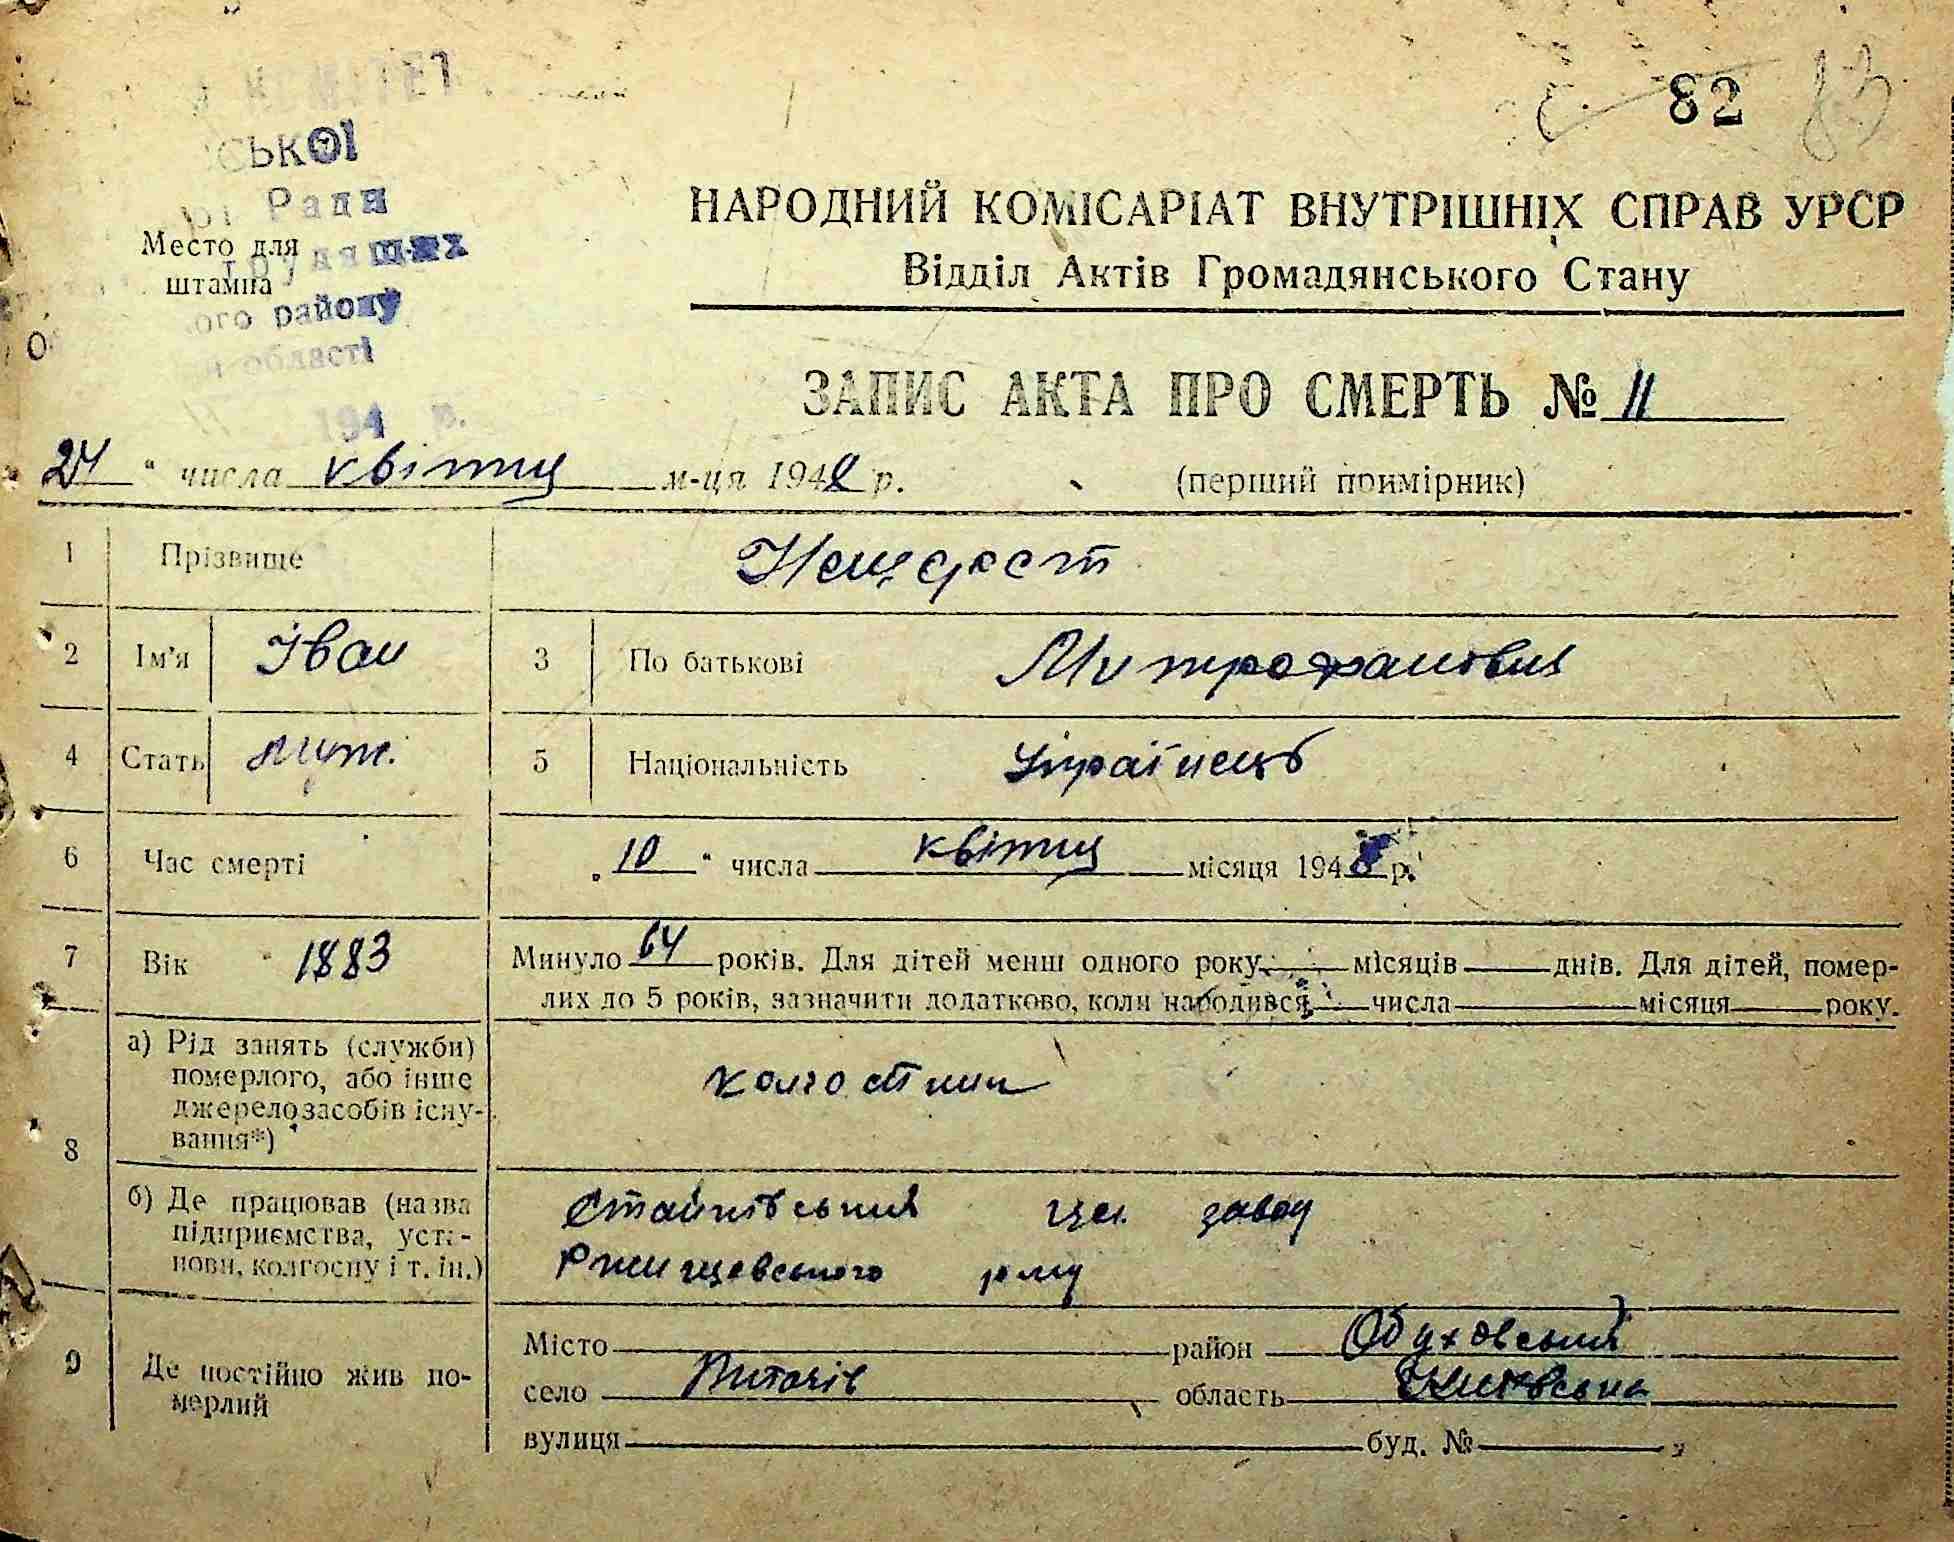 КОМІТЕТ
СЬКОЇ
Ради
Место для
трудящих
штампа
ого району
області
194 р.
82 83
НАРОДНИЙ КОМІСАРІАТ ВНУТРІШНІХ СПРАВ УРСР
Відділ Актів Громадянського Стану
ЗАПИС АКТА ПРО СМЕРТЬ № 11
24 " числа квітня м-ця 1948 р. (перший примірник)
1 Прізвище Нещерет
2 Ім'я Іван 3 По батькові Митрофанович
4 Стать муж. 5 Національність Українець
6 Час смерті „ 10 " числа квітня місяця 1948 р.
7 Вік 1883 Минуло 64 років. Для дітей менш одного року місяців днів. Для дітей, помер-
лих до 5 років, зазначити додатково, коли народився числа місяця року.
8 а) Рід занять (служби) померлого, або інше джерело засобів існу-вання*) колгоспник
б) Де працював (назва підприємства, уста-нови, колгоспу і т. ін.) Стайківський цег. завод
Ржищевського р-ну
9 Де постійно жив по-мерлий
Місто район Обуховський
село Витачів область Київська
вулиця буд. №